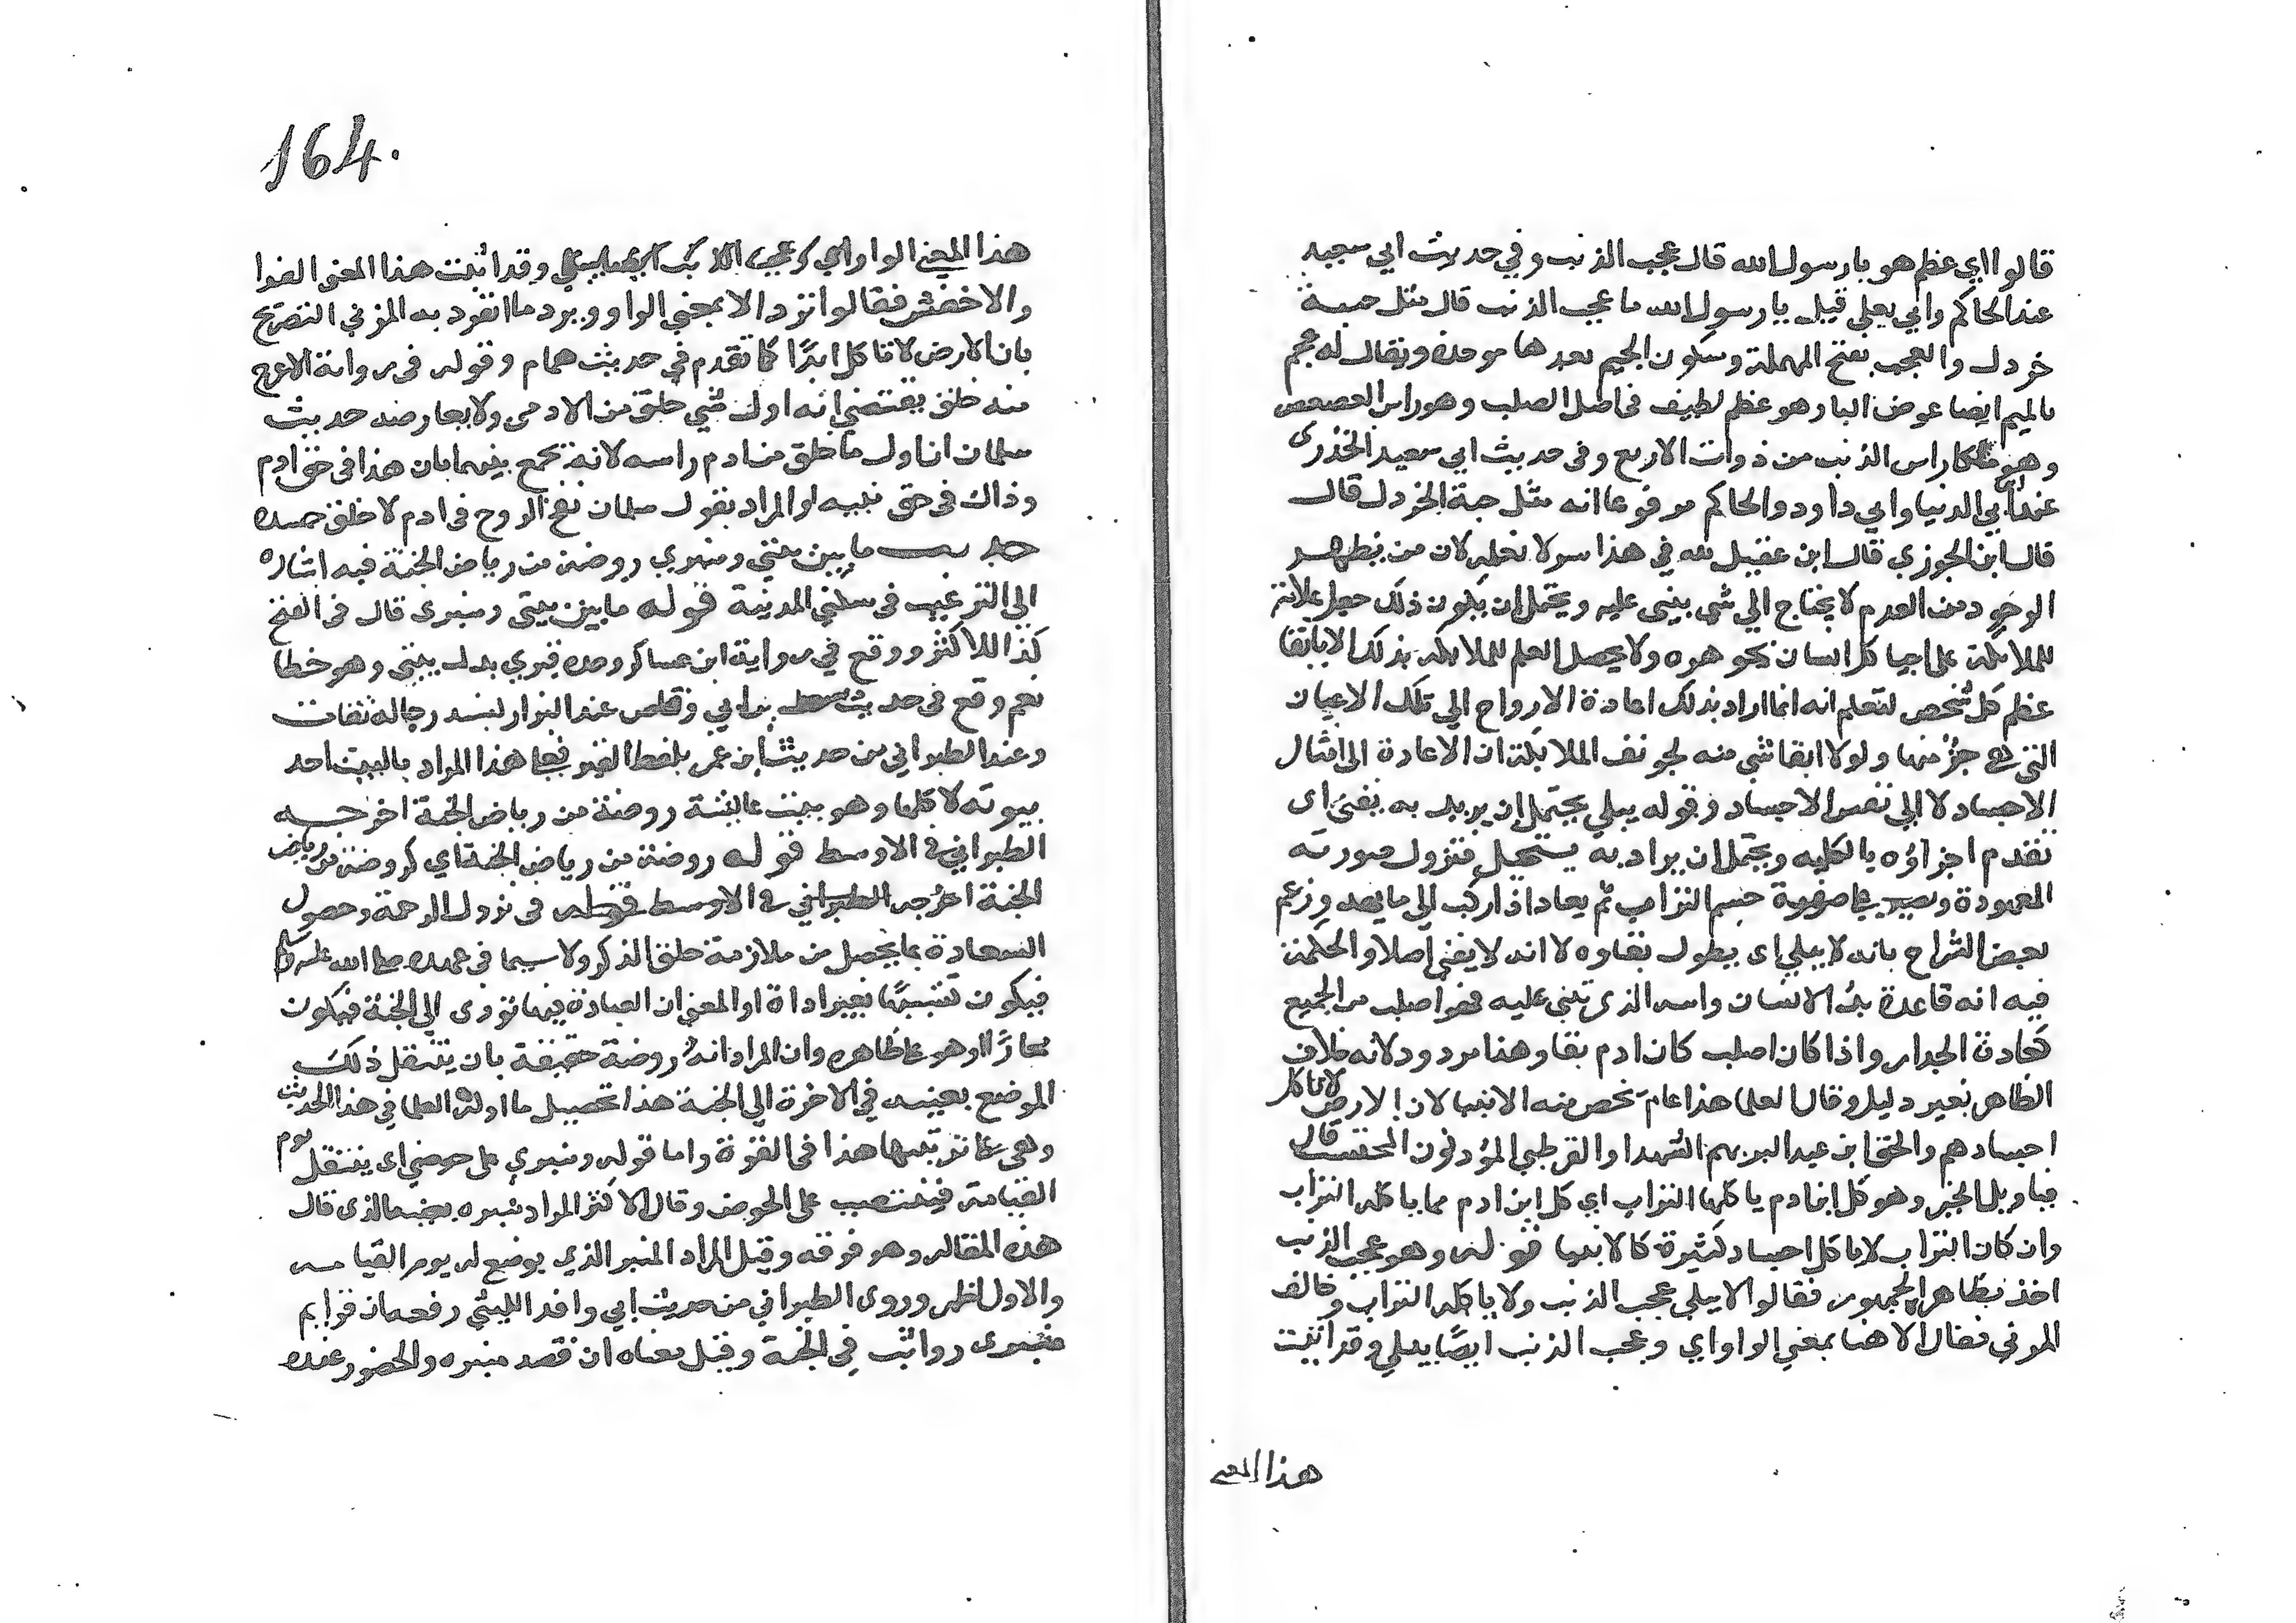 قالوا اي عظم هو يا رسول الله قال عجب الذنب وفي حديث ابي سعيد
عند الحاكم وابي يعلي قيل يا رسول الله ما عجب الذنب قال مثل حبة
خردل والعجب بفتح المهملة وسكون الجيم بعدها موحدة ويقال له عجم
بالميم ايضا عوض البا وهو عظم لطيف في اصل الصلب وهو راس العصعص
وهو مكان راس الذنب من ذوات الاربع وفي حديث ابي سعيد الخدري
عند ابن ابي الدنيا وابي داود والحاكم مرفوعا انه مثل حبة الخردل قال
قال ابن الجوزي قال ابن عقيل لله في هذا سر لا نعلمه لان من يظهر
الوجود من العدم لا يحتاج الي شي يبني عليه ويحتمل ان يكون ذلك جعل علامة
للملائكة علي احيا كل انسان بجوهره ولا يحصل العلم للملائكة بذلك الا بابقا
عظم كل شخص لتعلم انه انما اراد بذلك اعادة الارواح الي تلك الاعيان
التي هي جزؤ منها ولولا ابقا شي منه لجوزت الملائكة ان الاعادة الي امثال
الاجساد لا الي نفس الاجساد وقوله يبلي يحتمل ان يريد به يفني اي
تعدم اجزاؤه بالكليه ويحتمل ان يراد به يستحيل فتزول صورته
المعهودة ويصير علي صفة جسم التراب ثم يعاد اذا ركب الي ما يعهد وزعم
بعض الشراح بانه لا يبلي اي يطول بقاوه لا انه لا يفني اصلا والحكمة
فيه انه قاعدة بدؤ الانسان واسه الذي تبني عليه فهو اصلب من الجميع
كقاعدة الجدار واذا كان اصلب كان ادوم بقا وهذا مردود لانه خلاف
الظاهر بغير دليل وقال العلما هذا عام يخص منه الانبيا لان الارض لا تاكل
اجسادهم والحق ابن عبد البر بهم الشهدا والقرطبي المؤذن المحتسب قال
فتاويل الخبر وهو كل ابن ادم ياكله التراب اي كل ابن ادم مما ياكله التراب
وان كان التراب لا ياكل اجساد كثيرة كالانبيا قوله وهو عجب الذنب
اخذ بظاهره الجمهور فقالوا لا يبلي عجب الذنب ولا ياكله التراب وخالف
المزني فقال الا هنا بمعني الواو اي وعجب الذنب ايضًا يبلي وقد اثبت
هذا المعني
164.
هذا المعني الواو اي وعجب الذنب ايضا يبلي وقد اثبت هذا المعني الفرا
والاخفش فقالوا ترد الا بمعني الواو ويرد ما انفرد به المزني التصريح
بان الارض لا تاكله ابدًا كما تقدم في حديث همام وقوله في رواية الاعرج
منه خلق يقتضي انه اول شي خلق من الادمي ولا يعارضه حديث
سلمان ان اول ما خلق من ادم راسه لانه يجمع بينهما بان هذا في حق ادم
وذاك في حق بنيه او المراد بقول سلمان نفخ الروح في ادم لا خلق جسده
حديث ما بين بيتي ومنبري روضة من رياض الجنة فيه اشارة
الي الترغيب في سكني المدينة قوله ما بين بيتي ومنبري قال في الفتح
كذا للاكثر ووقع في رواية ابن عساكر وحده قبري بدل بيتي وهو خطا
نعم وقع في حديث سعد بن ابي وقاص عند البزار بسند رجاله ثقات
وعند الطبراني من حديث ابن عمر بلفظ القبر فعلي هذا المراد بالبيت احد
بيوته لا كلها وهو بيت عائشة روضة من رياض الجنة اخرجه
الطبراني في الاوسط قوله روضة من رياض الجنة اي كروضة من رياض
الجنة اخرجه الطبراني في الاوسط قوله في نزول الرحمة وحصول
السعادة بما يحصل من ملازمة حلق الذكر ولا سيما في عهده صلي الله عليه وسلم
فيكون تشبيهًا بغير اداة او المعني ان العبادة فيها تؤدي الي الجنة فيكون
مجازًا او هو علي ظاهره وان المراد انه روضة حقيقة بان ينتقل ذلك
الموضع بعينه في الاخرة الي الجنة هذا تحصيل ما اوله العلما في هذا الحديث
وهي علي ترتيبها هذا في القوة واما قوله ومنبري علي حوضي اي ينتقل يوم
القيامة فينتصب علي الحوض وقال الاكثر المراد منبره بعينه الذي قال
هذه المقاله وهو فوقه وقيل المراد المنبر الذي يوضع له يوم القيامه
والاول اظهر وروي الطبراني من حديث ابي واقد الليثي رفعه ان قوايم
منبري رواتب في الجنة وقيل معناه ان قصد منبره والحضور عنده